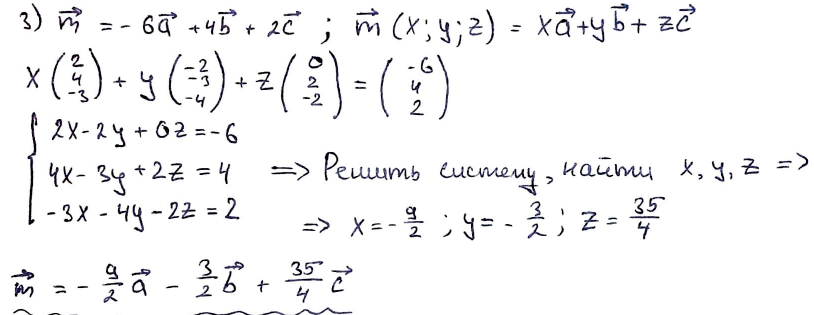 3) m⃗ = -6a⃗ + 4b⃗ + 2c⃗ ; m⃗ (x; y; z) = xa⃗ + yb⃗ + zc⃗
x (2 4 -3) + y (-2 -3 -4) + z (0 2 -2) = (-6 4 2)
{ 2x - 2y + 0z = -6
4x - 3y + 2z = 4 => Решить систему, найти x, y, z =>
-3x - 4y - 2z = 2 => x = -9/2 ; y = -3/2 ; z = 35/4
m⃗ = -9/2 a⃗ - 3/2 b⃗ + 35/4 c⃗